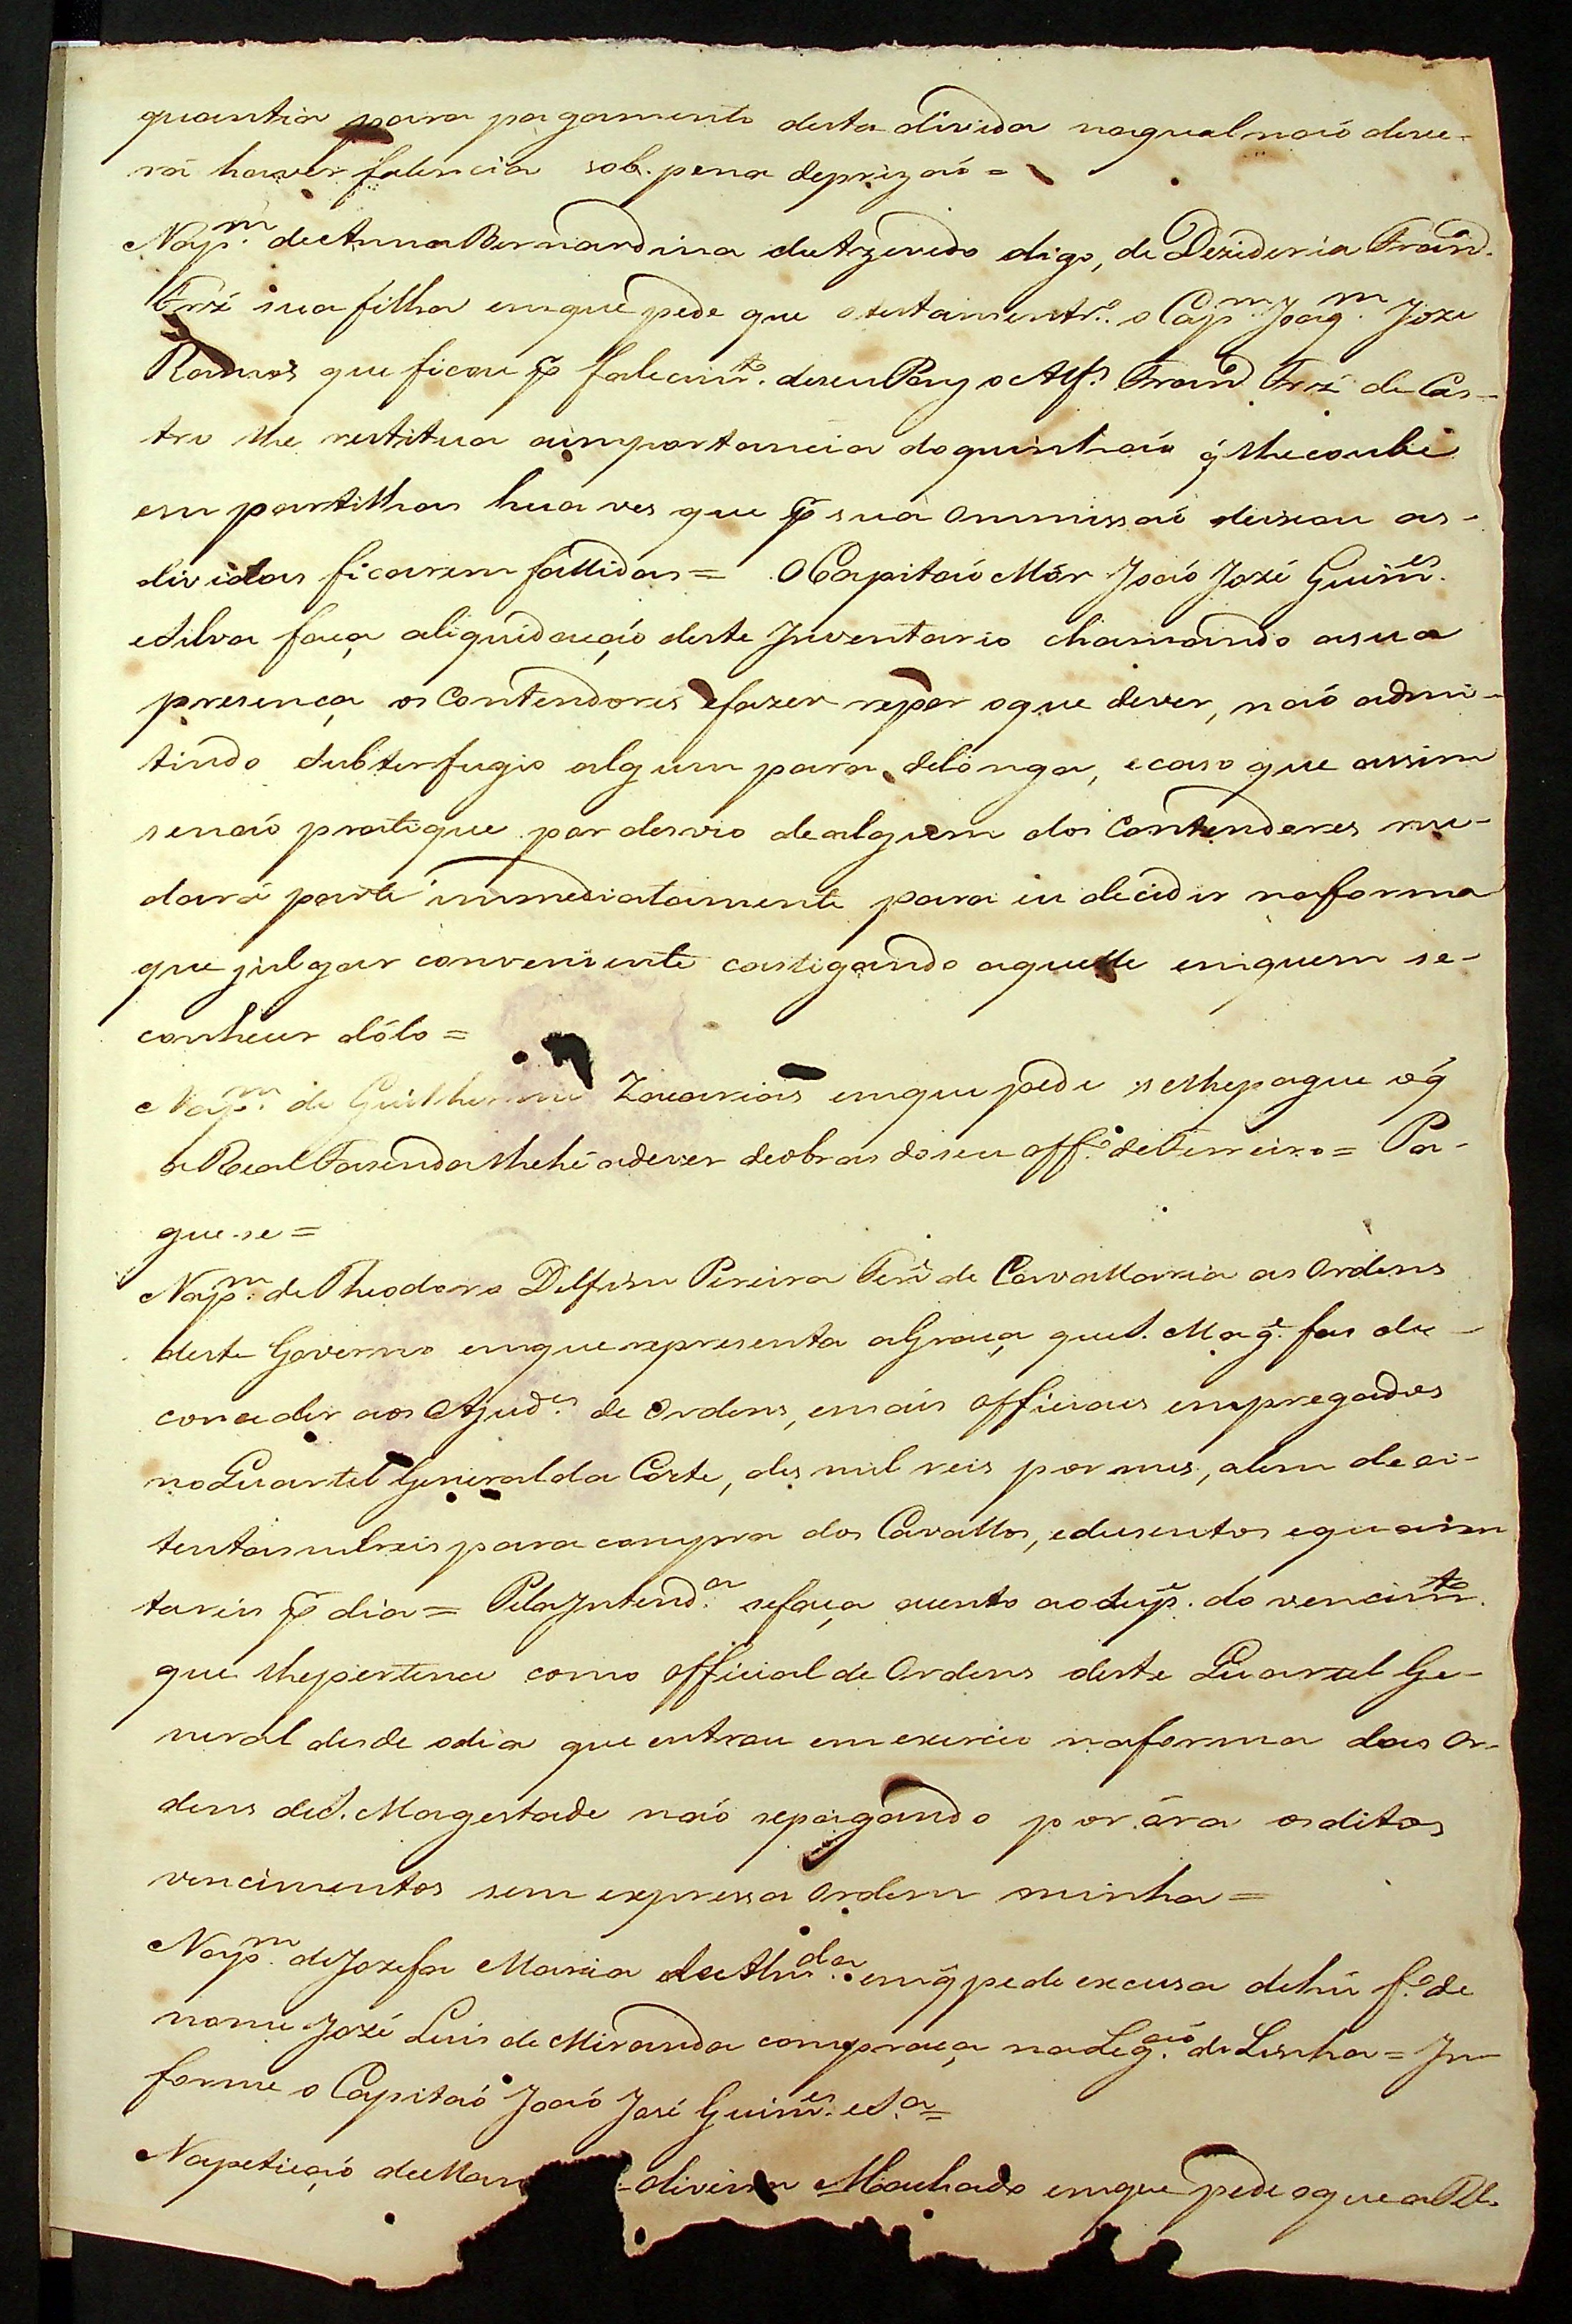 quantia para pagamento desta divida naqual naõ deve-
rá haver falencia sob. pena deprizaõ =
Nap.m de Anna Bernardina de Azevedo digo, de Dezideria Fran.d
Frz̃ sua filha emque pede que o testamentr.o o Cap.m Joaq.m Joze
Ramos que ficou p̃ falecim.to deseu Pay o Alf.s Fran.d Frz̃ de Cas-
tro lhe restitua aimportancia doquinhaõ q̃ lhecoube
em partilhas hua ves que p̃ sua ommissaõ deixou as-
dividas ficarem fallidas = OCapitaõ Mór Joaõ Jozé Guim.es
eSilva faça aliquidaçaõ deste Inventario chamando asua
presença os Contendores efazer repor oque dever, naõ admi-
tindo Subterfugio algum para delonga, ecaso que assim
senaõ pratique por desvio dealguem dos Contendores me-
dará parte immediatamente para eu decidir naforma
que julgar conveniente castigando aquelle emquem se-
conhecer dólo =
Nap.m de Guilherme Zacarias emque pede selhepague oq̃
a Real Fasenda lhehé adever deobras doseu off.o deFerreiro = Pa-
gue-se =
Nap.m deTheodoro Delfim Pereira Ten.e de Cavallaria as Ordens
deste Governo emque representa aGraça queS. Mag.e fas de-
conceder aos Ajud.es de Ordens, emais Officiaes empregados
noQuartel General da Corte, des mil reis por mes, alem de oi-
tentamilreis para compra dos Cavallos, edusentos equaren
tareis p̃ dia = PelaIntend.a sefaça acento aoSup.e do vencim.to
que lhepertence como Official de Ordens deste Quartel Ge-
neral desde odia que entrou emexercicio naforma das Or-
dens deS. Magestade naõ sepagando por óra osditos
vencimentos sem expressa Ordem minha =
Nap.m deJozefa Maria de Alm.da emq̃ pede excusa dehũ f.o de
nome Jozé Luis de Miranda compraça naLeg.aõ deLinha = In-
forme o Capitaõ Joaõ José Guim.es eS.a =
Napetiçaõ deMan oliveira Machado emque pede oque a Rl.